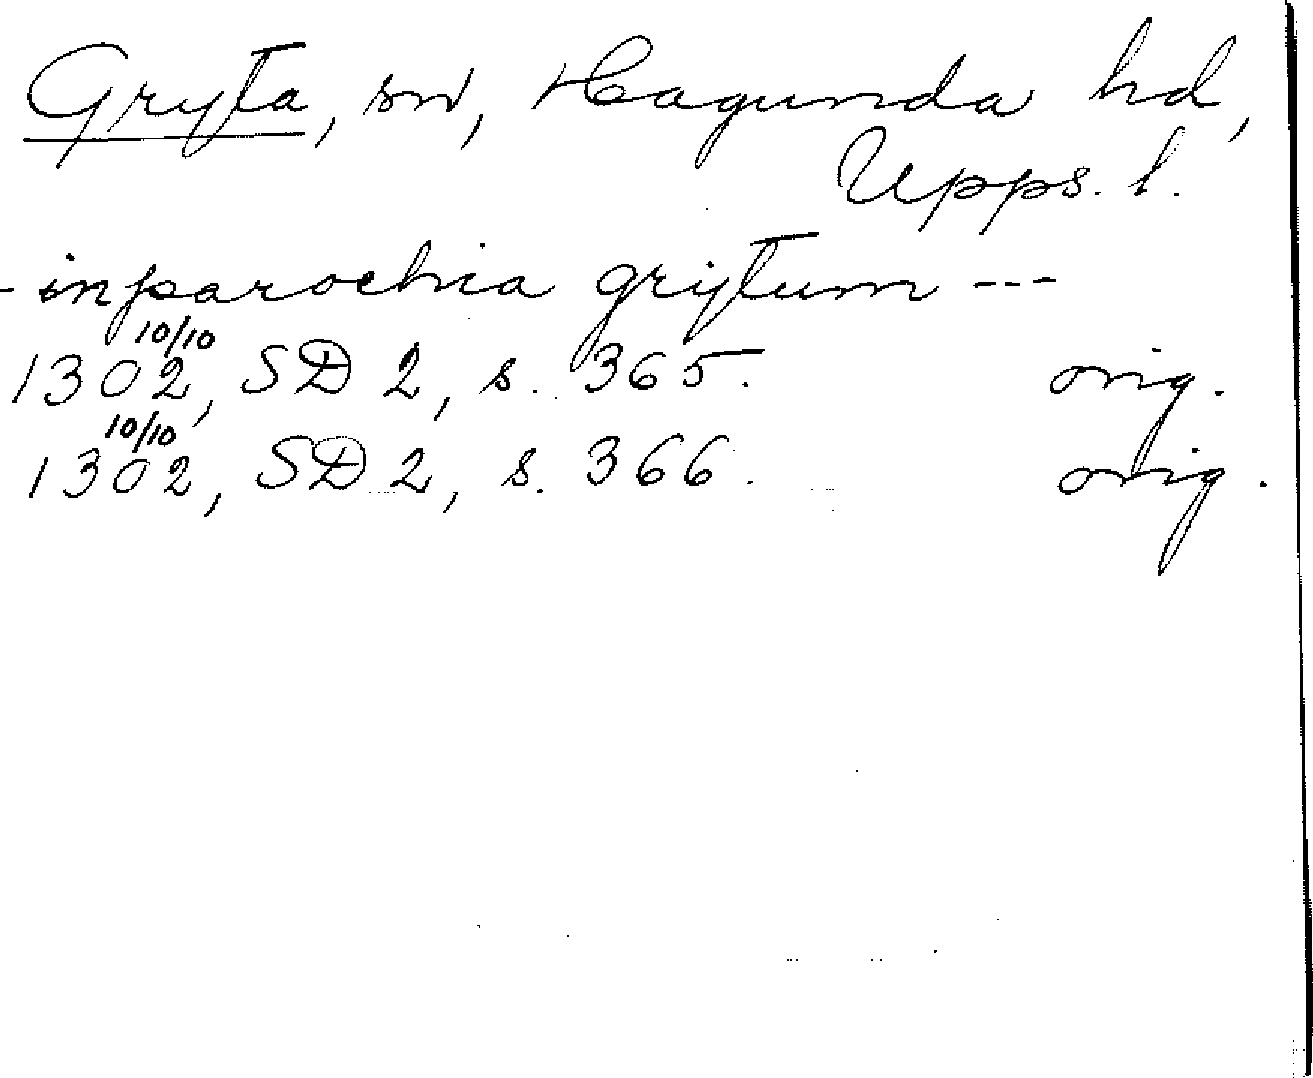 Gryta, sn, Hagunda hd,
Upps. l.
- in parochia grijtum ---
10/10
1302, SD 2, s. 365. orig.
10/10
1302, SD 2, s. 366. orig.